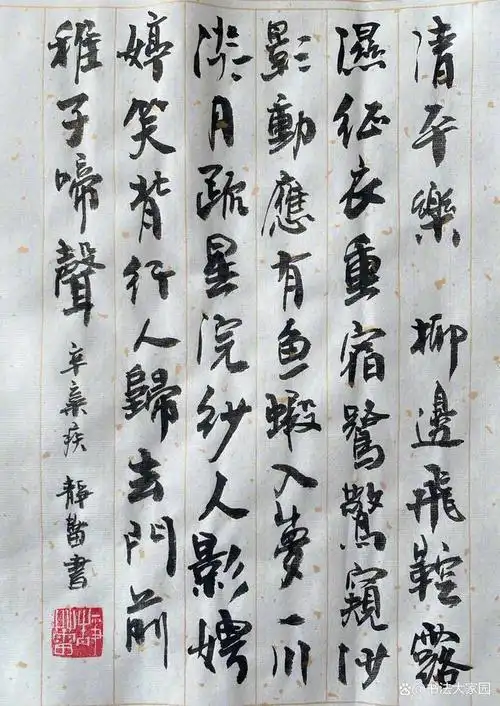 清平樂 柳邊飛鞚露
濕征衣重宿鷺驚窺沙
影動應有魚蝦入夢一川
淡月疏星浣紗人影娉
婷笑背行人歸去門前
稚子啼聲 辛棄疾 靜蕾書
书法大家园